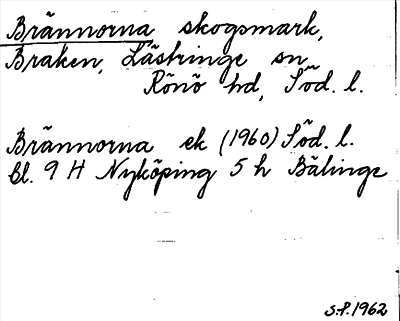 Brännorna skogsmark,
Braken, Lästringe sn,
Rönö hd, Söd. l.
Brännorna ek (1960) Söd. l.
bl. 9 H Nyköping 5 h Bälinge
S.P. 1962